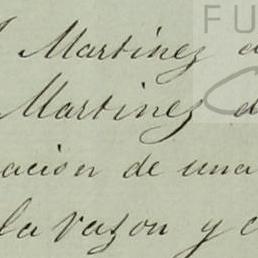 FU
Martinez
Martinez d
acion de una
la razon y c